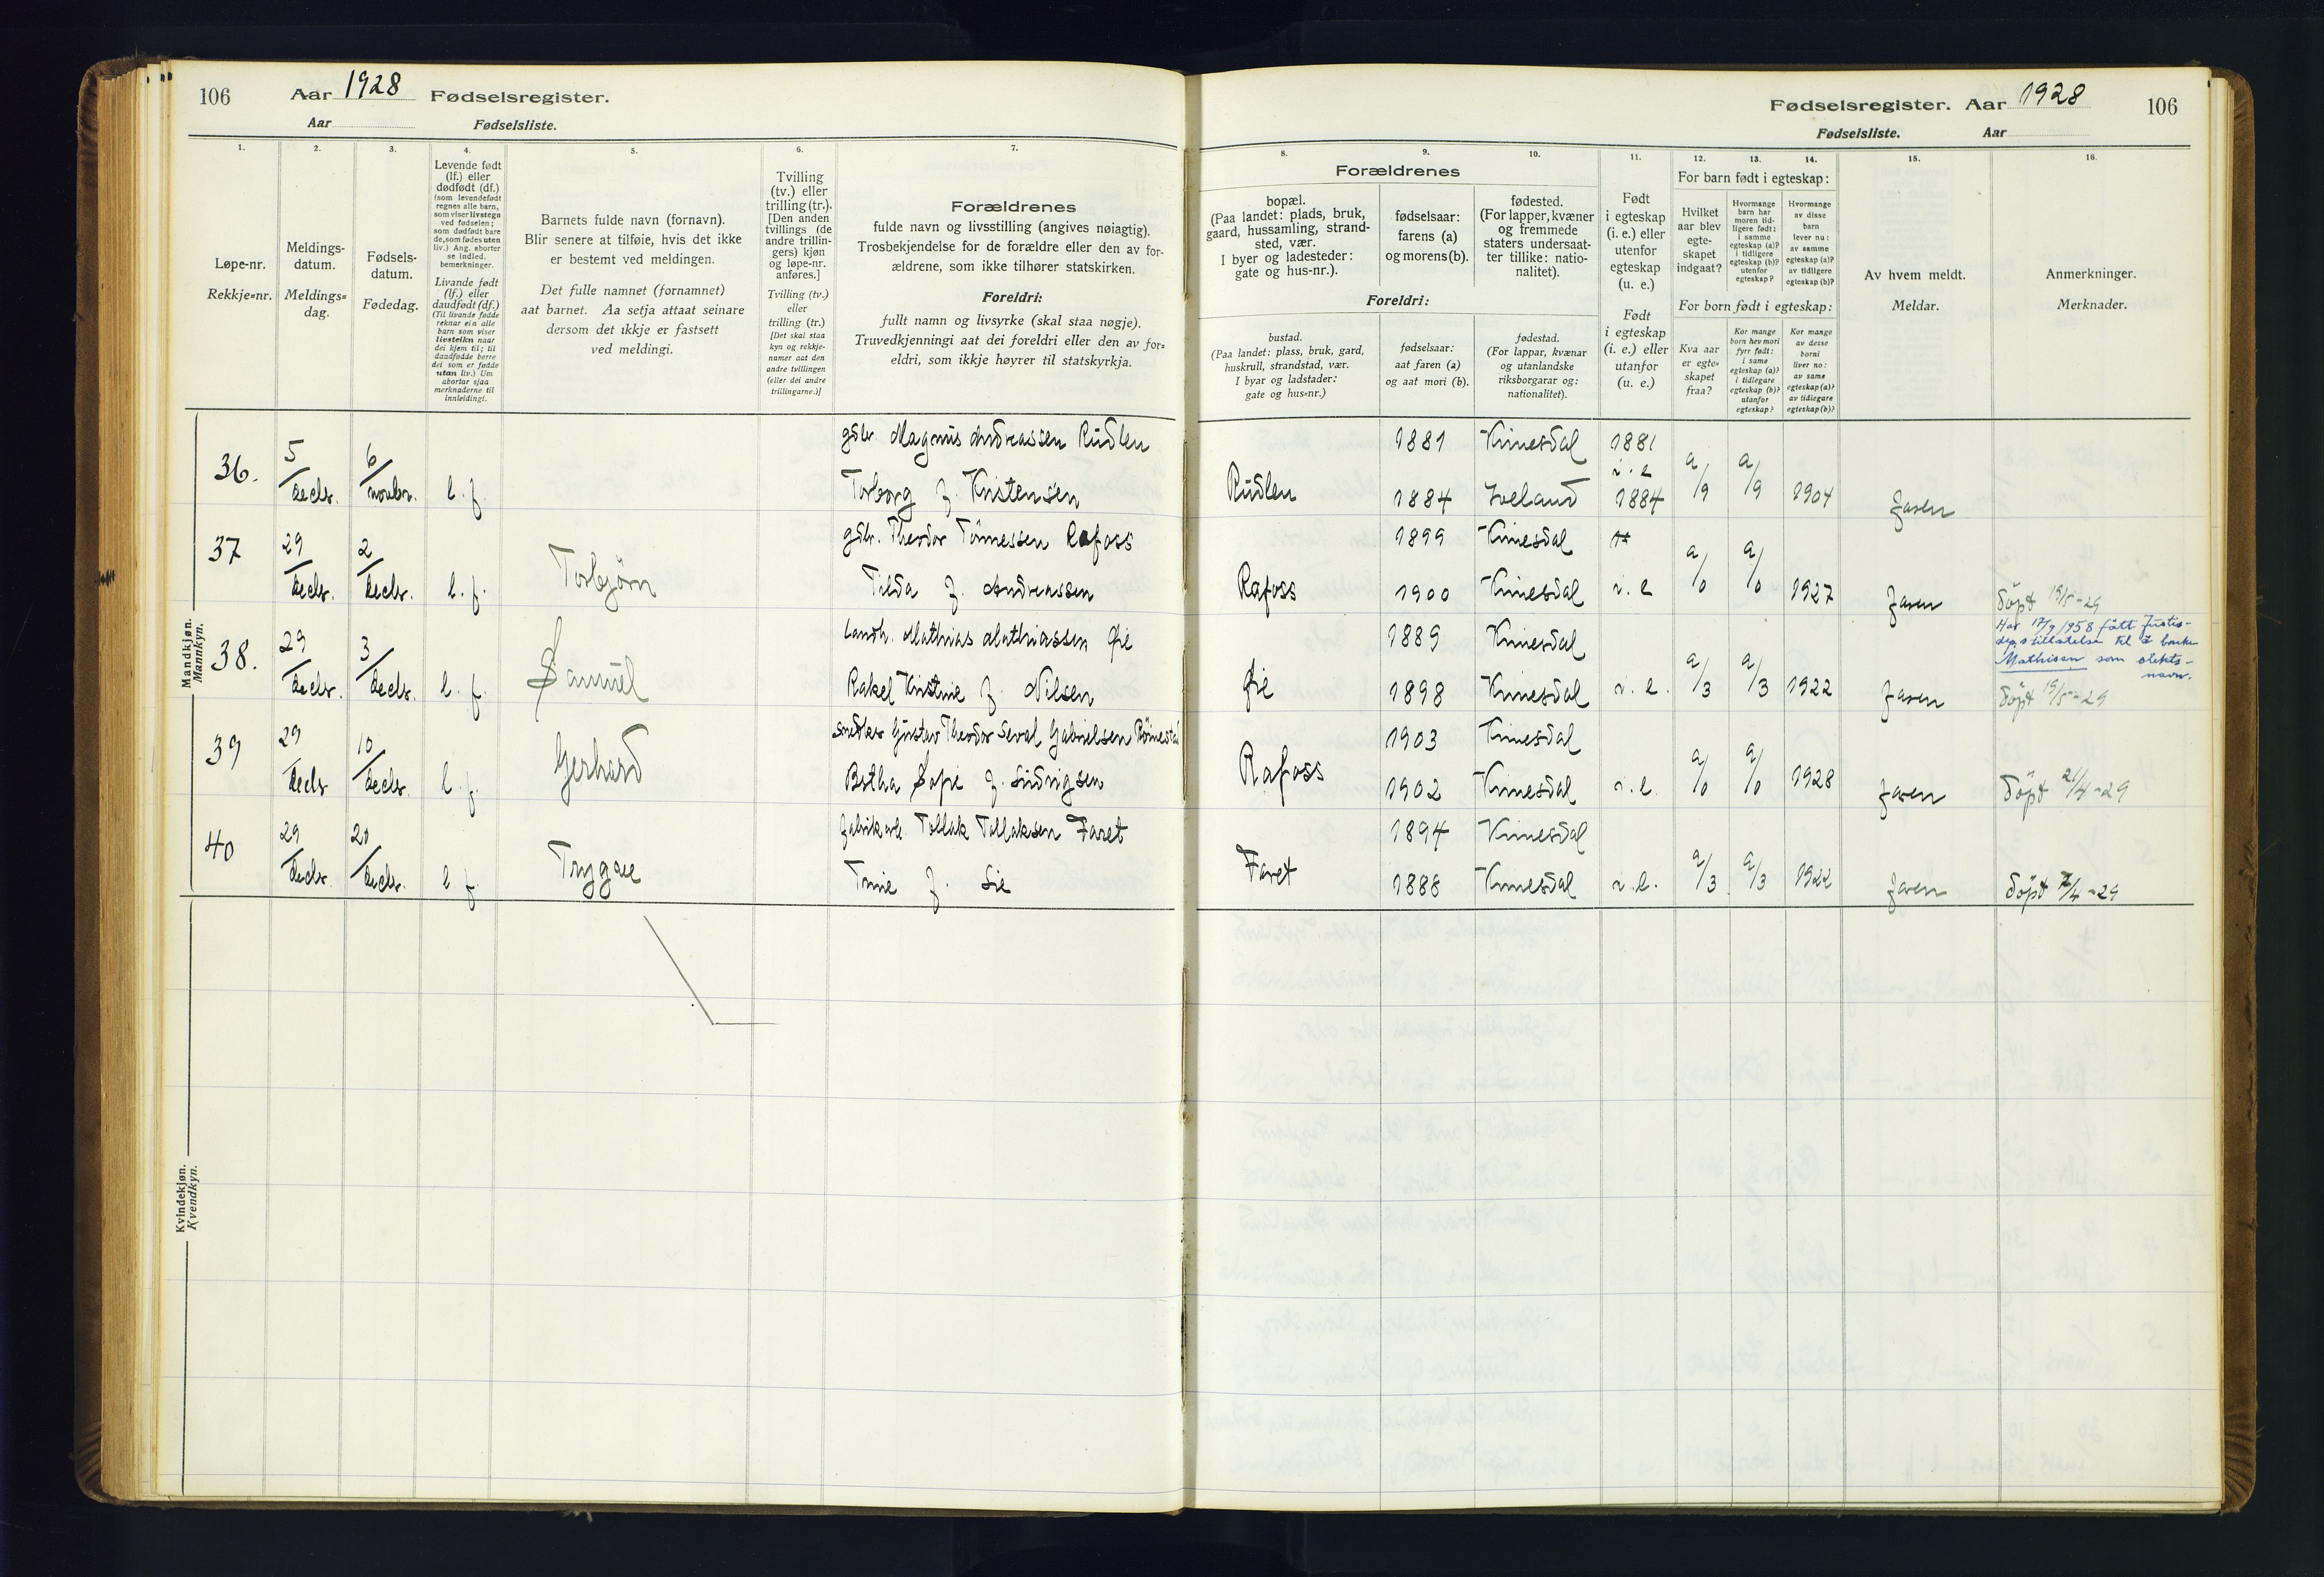 106 Aar 1928 Fødselsregister.
Aar Fødselsliste.
Fødselsregister. Aar 1928 106
Fødselsliste. Aar
1. 2. 3. 4. 5. 6. 7.
Løpe-nr.
Rekkje=nr.
Meldings-
datum.
Meldings=
dag.
Fødsels-
datum.
Fødedag.
Levende født
(lf.) eller
dødfødt (df.)
(som levendefødt
regnes alle barn,
som viser livstegn
ved fødselen;
som dødfødt bare
de, som fødes uten
liv.) Ang. aborter
se indled.
bemerkninger.
Livande født
(lf.) eller
daudfødt (df.)
(Til livande fødde
reknar ein alle
barn som viser
livsteikn naar
dei kjem til; til
daudfødde berre
dei som er fødde
utan liv.) Um
abortar sjaa
merknaderne til
innleidingi.
Barnets fulde navn (fornavn).
Blir senere at tilføie, hvis det ikke
er bestemt ved meldingen.
Det fulle namnet (fornamnet)
aat barnet. Aa setja attaat seinare
dersom det ikkje er fastsett
ved meldingi.
Tvilling
(tv.) eller
trilling (tr.).
[Den anden
tvillings (de
andre trillin-
gers) kjøn
og løpe-nr.
anføres.]
Tvilling (tv.)
eller
trilling (tr.)
[Det skal staa
kyn og rekkje-
numer aat den
andre tvillingen
(eller dei andre
trillingarne.)]
Forældrenes
fulde navn og livsstilling (angives nøiagtig).
Trosbekjendelse for de forældre eller den av for-
ældrene, som ikke tilhører statskirken.
Foreldri:
fullt namn og livsyrke (skal staa nøgje).
Truvedkjenningi aat dei foreldri eller den av for=
eldri, som ikkje høyrer til statskyrkja.
8. 9. 10. 11. 12. 13. 14. 15. 16.
Forældrenes
bopæl.
(Paa landet: plads, bruk,
gaard, hussamling, strand-
sted, vær.
I byer og ladesteder:
gate og hus-nr.).
fødselsaar:
farens (a)
og morens (b).
fødested.
(For lapper, kvæner
og fremmede
staters undersaat-
ter tillike: natio-
nalitet).
Foreldri:
bustad.
(Paa landet: plass, bruk, gard,
huskrull, strandstad, vær.
I byar og ladstader:
gate og hus=nr.)
fødselsaar:
aat faren (a)
og aat mori (b).
fødestad.
(For lappar, kvænar
og utanlandske
riksborgarar og:
nationalitet).
Født
i egteskap
(i. e.) eller
utenfor
egteskap
(u. e.)
Født
i egteskap
(i. e.) eller
utanfor
(u. e.)
For barn født i egteskap:
Hvilket
aar blev
egte-
skapet
indgaat?
Hvormange
barn har
moren tid-
ligere født:
i samme
egteskap (a)?
i tidligere
egteskap (b)?
utenfor
egteskap?
Hvormange
av disse
barn
lever nu:
av samme
egteskap (a)?
av tidligere
egteskap (b)?
For born født i egteskap:
Kva aar
er egte-
skapet
fraa?
Kor mange
born hev mori
fyrr født:
i same
egteskap (a)?
i tidlegare
egteskap (b)?
utanfor
egteskap?
Kor mange
av desse
borni
liver no:
av same
egteskap (a)?
av tidlegare
egteskap (b)?
Av hvem meldt.
Meldar.
Anmerkninger.
Merknader.
Mandkjøn.
Mannkyn.
gdbr. Magnus Andreassen Rudlen 1881 Kvinesdal 1881
36. 5/decbr. 6/novbr. l. f. Torborg f. Kristensen Rudlen 1884 Iveland i. e 1884 a/9 a/9 1904 faren
gdbr. Theodor Tønnessen Rafoss 1899 Kvinesdal
37 29/decbr. 2/decbr. l. f. Torbjørn Tilda f. Andreassen Rafoss 1900 Kvinesdal i. e a/0 a/0 1927 faren döpt 19/5-29
landh. Mathias Mathiassen Øie 1889 Kvinesdal
Har 17/9 1958 fått Justis-
dep.s tillatelse til å bruke
Mathisen som slekts-
navn.
38. 29/decbr. 3/decbr. l. f. Samuel Rakel Kristine f. Nilsen Øie 1898 Kvinesdal i. e. a/3 a/3 1922 faren döpt 19/5-29
Gustav Theodor Seval Gabrielsen Römestad 1903 Kvinesdal
39 29/decbr 10/decbr. l. f. Gerhard Bertha Sofie f. Ludvigsen Rafoss 1902 Kvinesdal i. e. a/0 a/0 1928 faren döpt 21/4-29
fabrikarb Tollak Tollaksen Faret 1894 Kvinesdal
40 29/decbr. 20/decbr. l f. Tryggve Trine f. Lie Faret 1888 Kvinesdal i. e. a/3 a/3 1922 faren döpt 7/4-29
Kvindekjøn.
Kvendkyn.